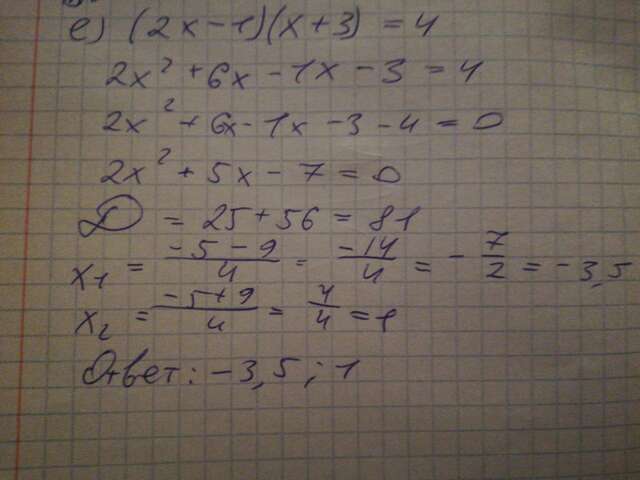 е) (2x-1)(x+3) = 4
2x² + 6x - 1x - 3 = 4
2x² + 6x - 1x - 3 - 4 = 0
2x² + 5x - 7 = 0
D = 25 + 56 = 81
x₁ = (-5-9)/4 = -14/4 = -7/2 = -3,5
x₂ = (-5+9)/4 = 4/4 = 1
Ответ: -3,5 ; 1